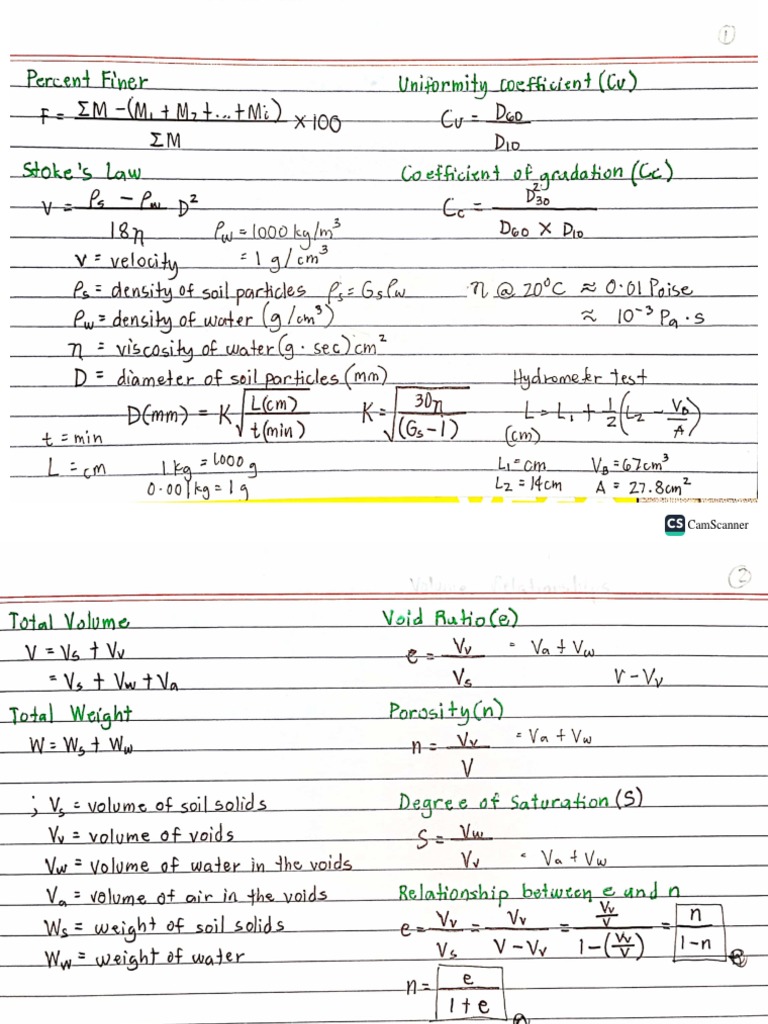 1
Percent Finer
F = ΣM - (M₁ + M₂ + ... + Mi) / ΣM × 100
Uniformity coefficient (Cu)
Cu = D₆₀ / D₁₀
Stoke's Law
V = ρs - ρw / 18η D²
ρw = 1000 kg/m³
= 1 g/cm³
Coefficient of gradation (Cc)
Cc = D²₃₀ / D₆₀ × D₁₀
v = velocity
ρs = density of soil particles ρs = Gsρw
η @ 20°C ≈ 0.01 Poise
ρw = density of water (g/cm³)
≈ 10⁻³ Pa·s
η = viscosity of water (g·sec) cm²
D = diameter of soil particles (mm)
Hydrometer test
D(mm) = K √ L(cm) / t(min)
K = √ 30η / (Gs - 1)
L = L₁ + 1/2 (L₂ - VB / A)
(cm)
t = min
L = cm
1 kg = 1000 g
0.001 kg = 1 g
L₁ = cm VB = 67cm³
L₂ = 14cm A = 27.8cm²
CS CamScanner
2
Total Volume
V = Vs + Vv
= Vs + Vw + Va
Void Ratio (e)
e = Vv / Vs = Va + Vw
V - Vv
Total Weight
W = Ws + Ww
Porosity (n)
n = Vv / V = Va + Vw
; Vs = volume of soil solids
Vv = volume of voids
Vw = volume of water in the voids
Va = volume of air in the voids
Ws = weight of soil solids
Ww = weight of water
Degree of Saturation (S)
S = Vw / Vv = Va + Vw
Relationship between e and n
e = Vv / Vs = Vv / V - Vv = Vv/V / 1 - (Vv/V) = n / 1-n
n = e / 1 + e